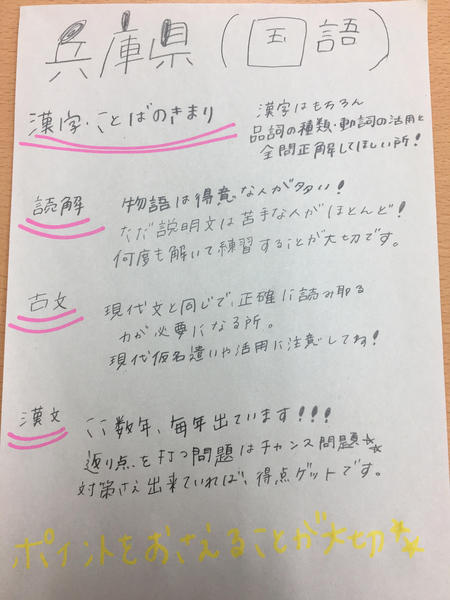 兵庫県(国語)
漢字・ことばのきまり
漢字はもちろん
品詞の種類・動詞の活用と
全問正解してほしい所!
読解
物語は得意な人が多い!
ただ説明文は苦手な人がほとんど!
何度も解いて練習することが大切です。
古文
現代文と同じで、正確に読み取る
力が必要になる所。
現代仮名遣いや活用に注意してね!
漢文
ここ数年、毎年出ています!!!
返り点を打つ問題はチャンス問題☆☆
対策さえ出来ていれば、得点ゲットです。
ポイントをおさえることが大切☆☆